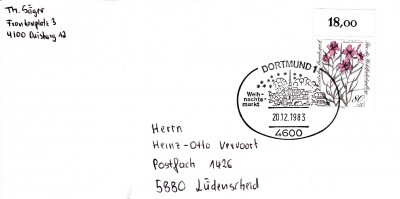 Th. Säger
Frankenplatz 3
4100 Duisburg 12
18,00
DORTMUND 1
Weih-
nachts-
markt
20.12.1983
4600
80
Herrn
Heinz-Otto Vervoort
Postfach 1426
5880 Lüdenscheid